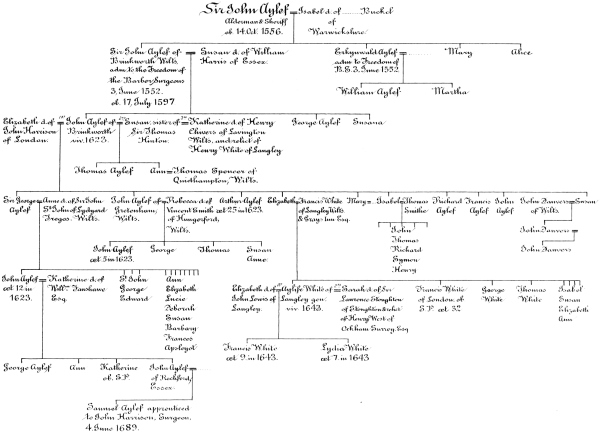 Sir John Aylef = Isabel d. of ........ Buckel
Alderman & Sheriff of
ob. 14. Oct. 1556. Warwickshire.
Sir John Aylef of = Susan d. of William Erkynwald Aylef = ........ Mary Alice
Brinkworth Wilts, Harris of Essex. adm. to Freedom of
adm. to the Freedom of B.S. 3. June 1552
the Barber Surgeons William Aylef Martha
3. June 1552.
ob. 17. July 1597
Elizabeth d. of = John Aylef of = Susan: sister of = Katherine d. of Henry George Aylef Susana
John Harrison Brinkworth Sir Thomas Chivers of Lavington
of London. viv. 1623. Hinton. Wilts, and relict of
Henry White of Langley
Thomas Aylef Ann = Thomas Spencer of
Quidhampton, Wilts.
Sir George = Anne d. of Sir John John Aylef of = Rebecca d. of Arthur Aylef Elizabeth = Francis White Mary = Isabel = Thomas Richard Francis John John Danvers = Susan
Aylef St. John of Lydyard Gretenham, Vincent Smith æt 25 in 1623. of Langley Wilts Smithe Aylef Aylef Aylef of Wilts.
Tregos. Wilts. Wilts. of Hungerford, & Grays Inn Esq.
Wilts.
John Aylef George Thomas Susan
æt 5 in 1623. Anne
John John Danvers =
Thomas
Richard John Danvers
Symon
Henry
John Aylef = Katherine d. of St. John Ann
æt 12 in Will.m Fanshawe George Elizabeth
1623. Esq. Edward Lucie
Deborah
Susan
Barbary
Frances
Apsloyd
Elizabeth d. of = Aylife White of = Sarah d. of Sir Francis White George Thomas Isabel
John Lowes of Langley gen. Lawrence Stoughton of London. ob. White White Susan
Langley. viv. 1643. of Stoughton & relict S.P. æt. 32 Elizabeth
of Henry West of Ann
Ockham Surrey. Esq
Francis White Lydia White
æt. 9 in 1643. æt. 7 in 1643
George Aylef Ann Katherine John Aylef = ........
ob. S.P. of Rochford,
Essex
Samuel Aylef apprenticed
to John Harrison, Surgeon,
4. June 1689.